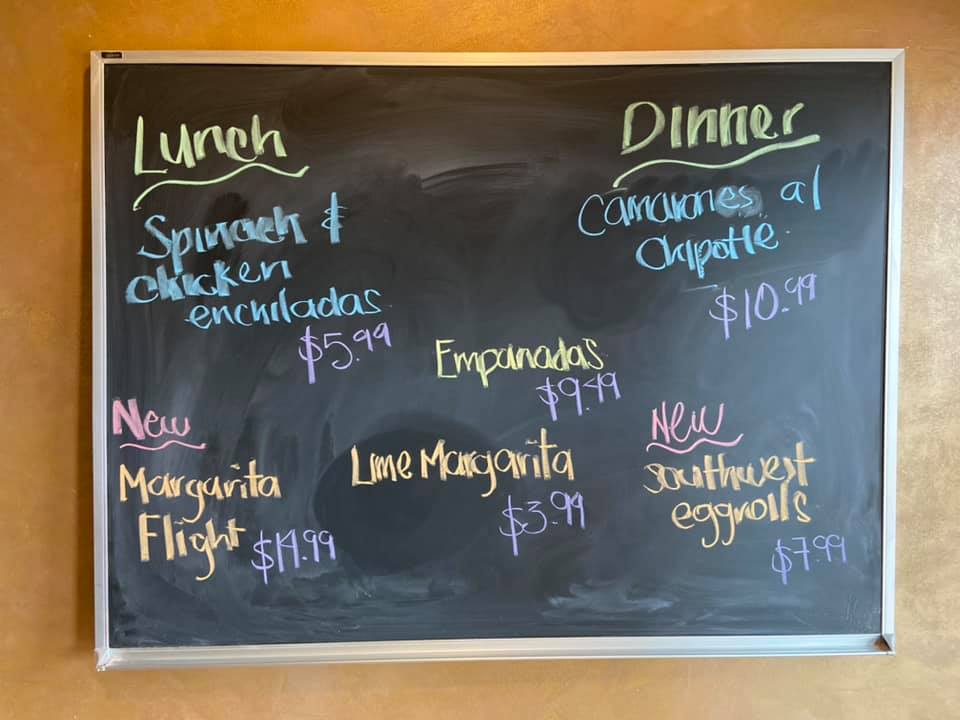 Lunch
Spinach &
chicken
enchiladas
$5.99
Dinner
Camarones al
Chipotle
$10.99
Empanadas
$9.49
New
Margarita
Flight $14.99
Lime Margarita
$3.99
New
southwest
eggrolls
$7.99